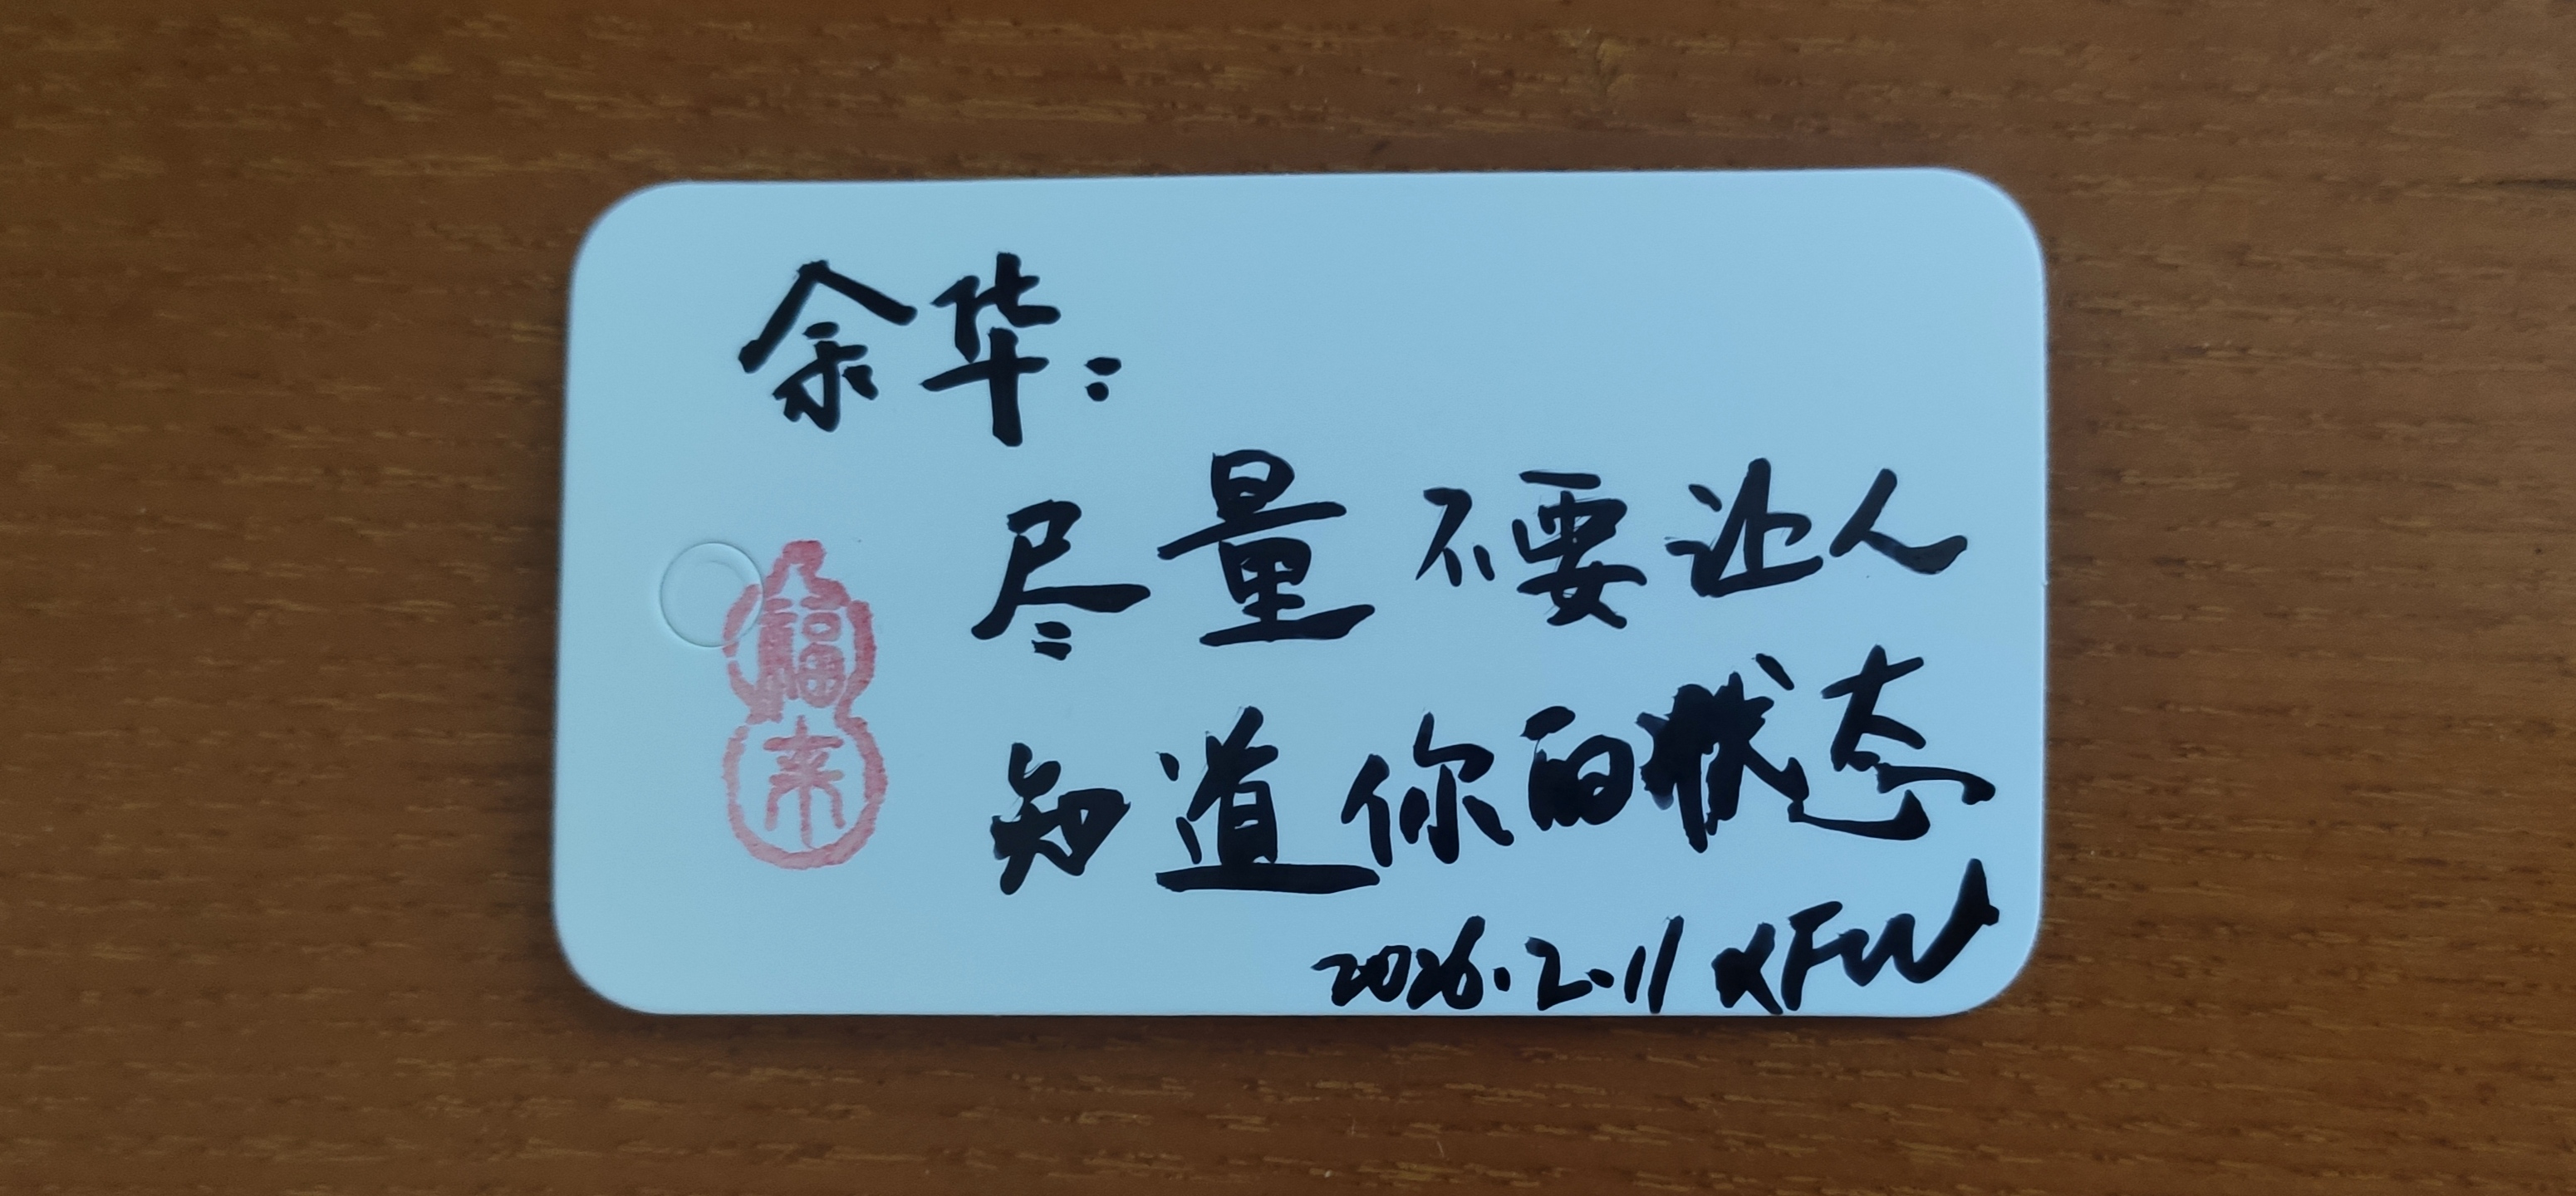 余华：
尽量不要让人
知道你的状态
2026.2.11 XFW
福
来